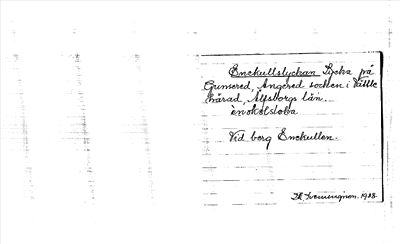 Enekullslyckan Lycka på
Gunnered, Angered socken i Vättle
härad, Älfsborgs län.
ènəkəlsloka
Vid berg Enekullen.
1928.